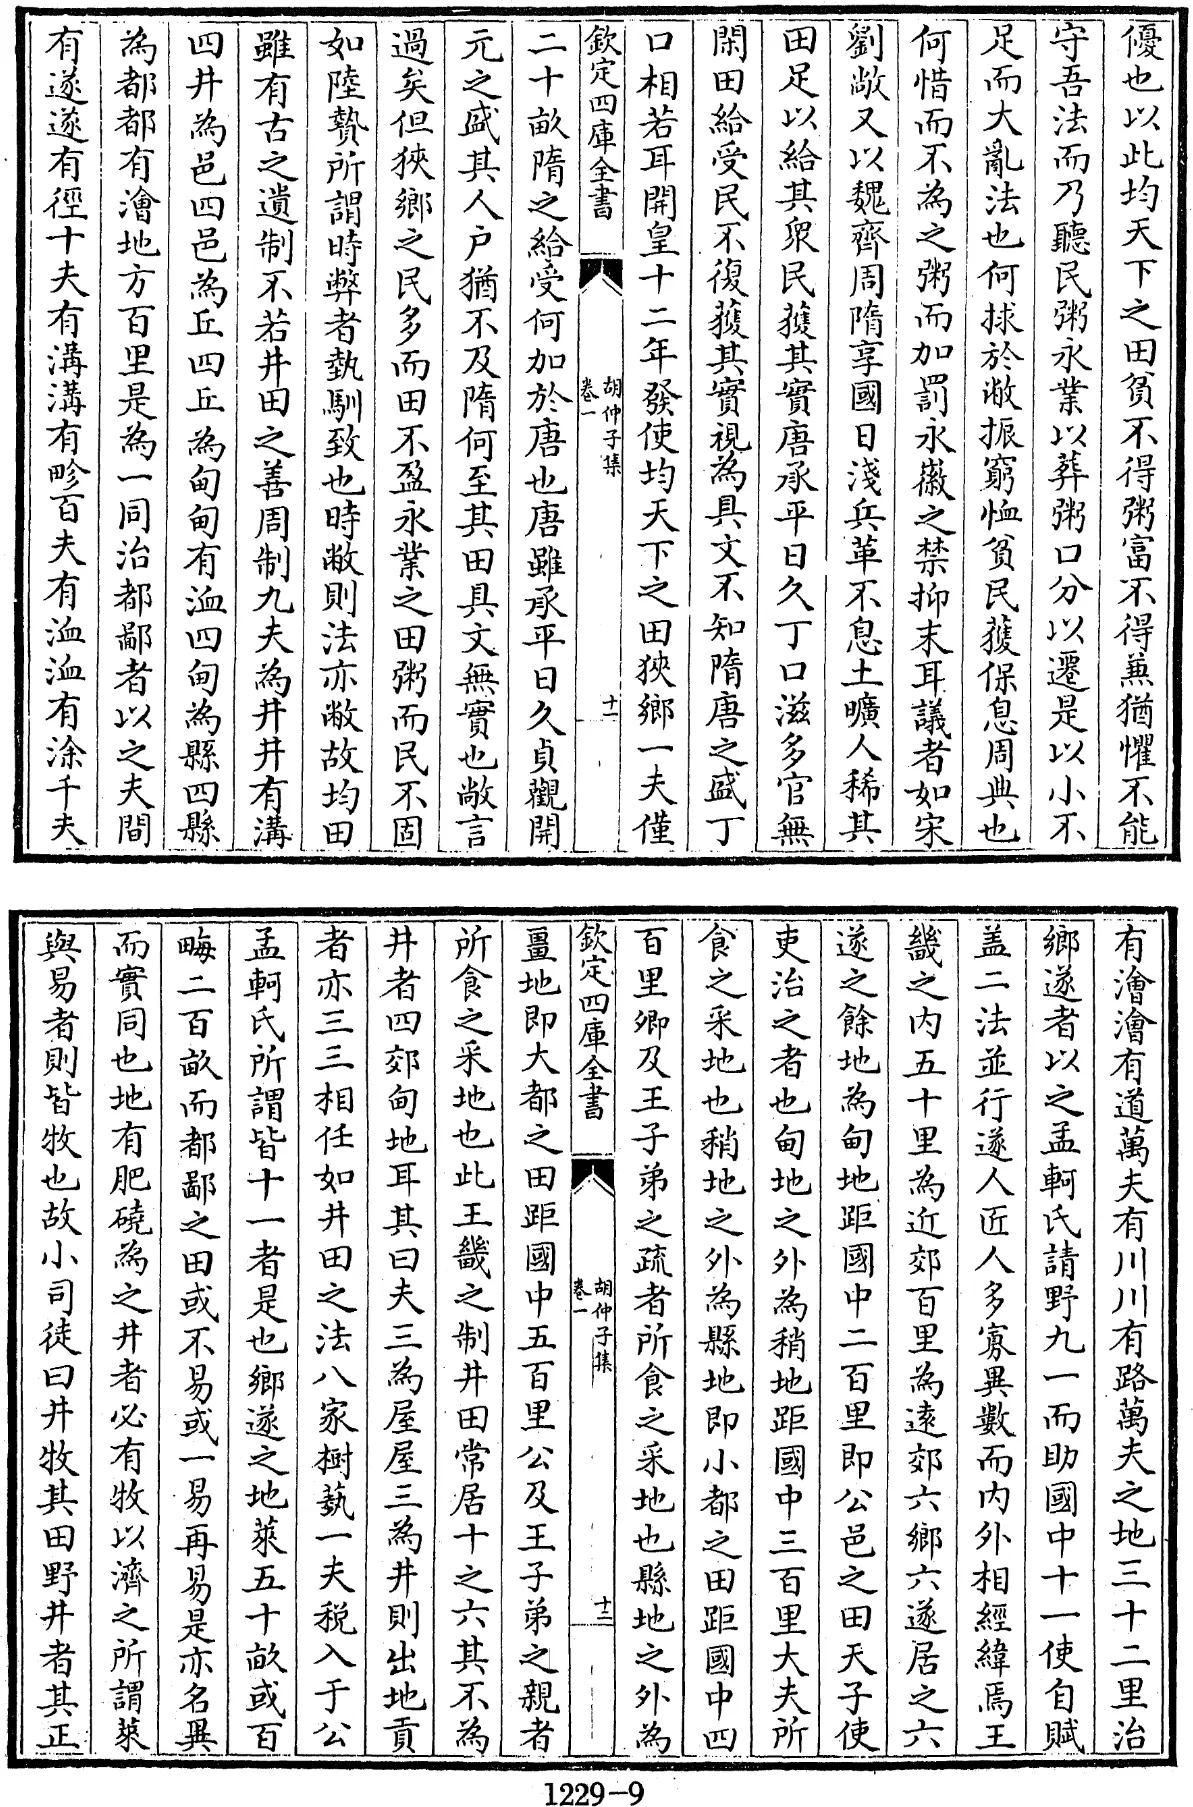 優也以此均天下之田貧不得粥富不得兼猶懼不能
守吾法而乃聽民粥永業以葬粥口分以遷是以小不
足而大亂法也何捄於敝振窮恤貧民獲保息周典也
何惜而不為之粥而加罰永徽之禁抑末耳議者如宋
劉敞又以魏齊周隋享國日淺兵革不息土曠人稀其
田足以給其衆民獲其實唐承平日久丁口滋多官無
閑田給受民不復獲其實視為具文不知隋唐之盛丁
口相若耳開皇十二年發使均天下之田狹鄉一夫僅
欽定四庫全書
胡仲子集
卷一
十一
二十畝隋之給受何加於唐也唐雖承平日久貞觀開
元之盛其人户猶不及隋何至其田具文無實也敞言
過矣但狹鄉之民多而田不盈永業之田粥而民不固
如陸贄所謂時弊者執馴致也時敝則法亦敝故均田
雖有古之遺制不若井田之善周制九夫為井井有溝
四井為邑四邑為丘四丘為甸甸有洫四甸為縣四縣
為都都有澮地方百里是為一同治都鄙者以之夫間
有遂遂有徑十夫有溝溝有畛百夫有洫洫有涂千夫
有澮澮有道萬夫有川川有路萬夫之地三十二里治
鄉遂者以之孟軻氏請野九一而助國中十一使自賦
盖二法並行遂人匠人多寡異數而内外相經緯焉王
畿之内五十里為近郊百里為遠郊六鄉六遂居之六
遂之餘地為甸地距國中二百里即公邑之田天子使
吏治之者也甸地之外為稍地距國中三百里大夫所
食之采地也稍地之外為縣地即小都之田距國中四
百里卿及王子弟之疏者所食之采地也縣地之外為
欽定四庫全書
胡仲子集
卷一
十二
畺地即大都之田距國中五百里公及王子弟之親者
所食之采地也此王畿之制井田常居十之六其不為
井者四郊甸地耳其曰夫三為屋屋三為井則出地貢
者亦三三相任如井田之法八家樹蓺一夫税入于公
孟軻氏所謂皆十一者是也鄉遂之地萊五十畝或百
畮二百畝而都鄙之田或不易或一易再易是亦名異
而實同也地有肥磽為之井者必有牧以濟之所謂萊
與易者則皆牧也故小司徒曰井牧其田野井者其正
1229-9